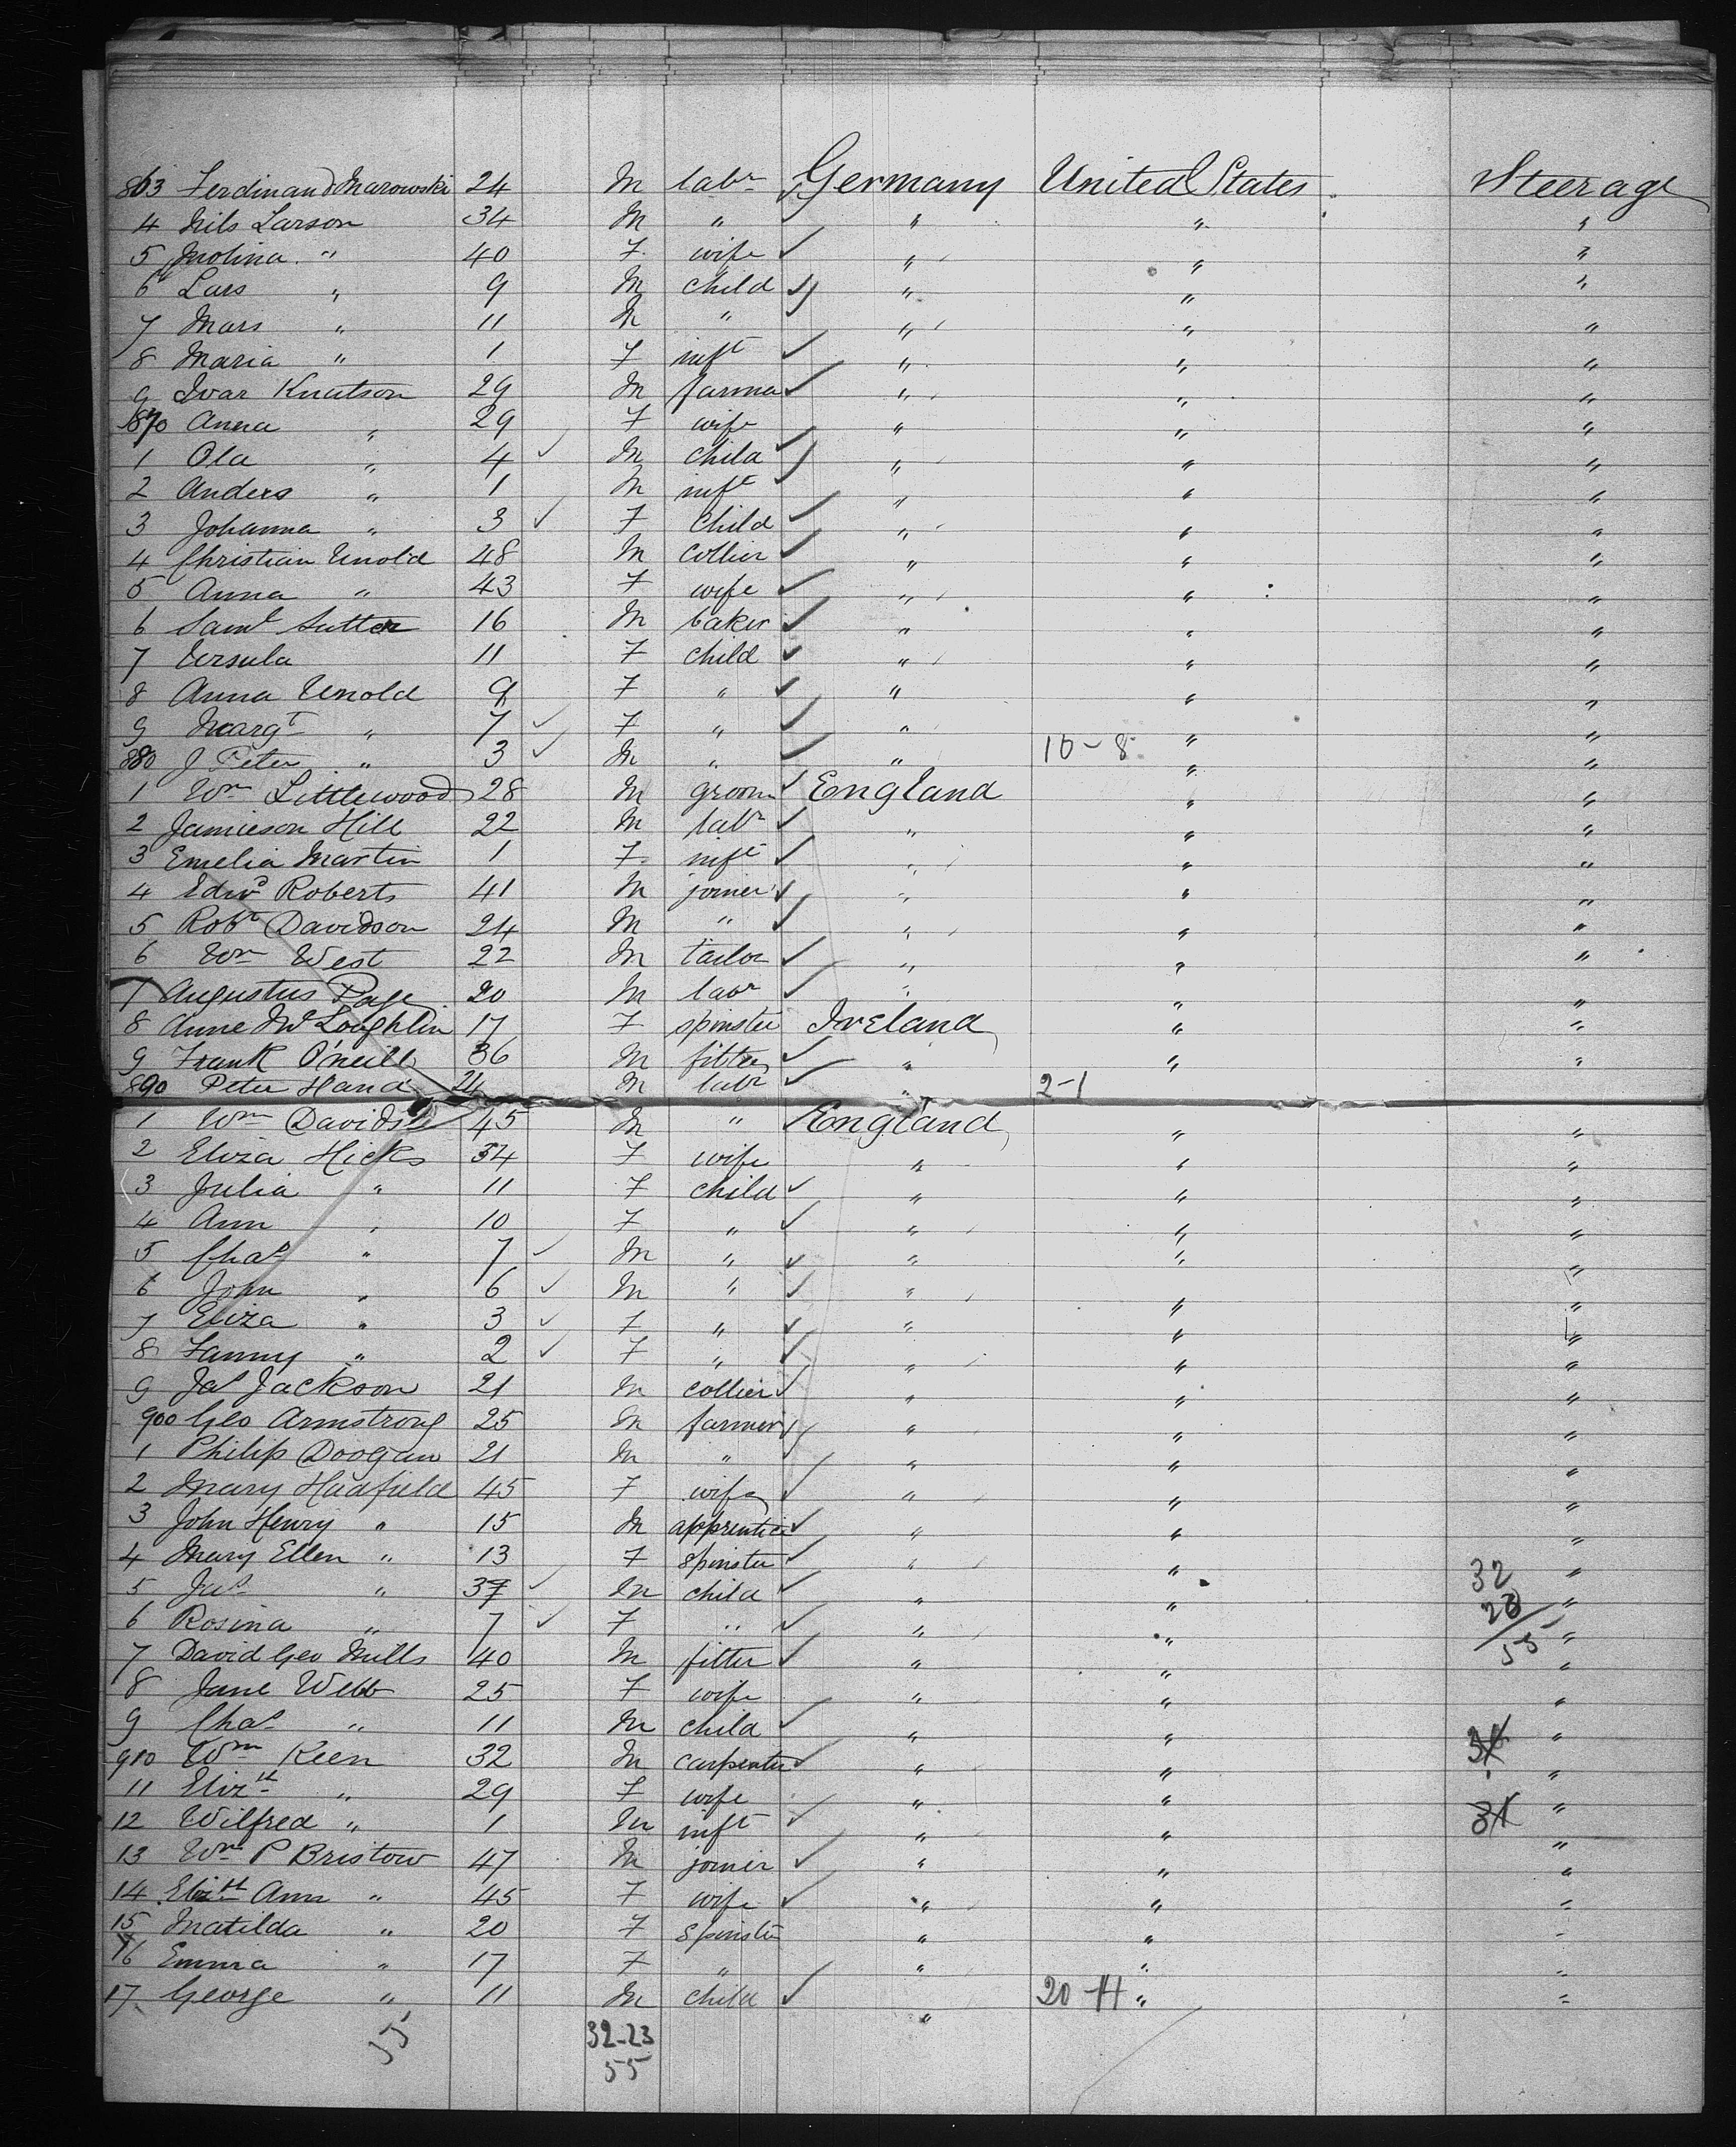 863 Ferdinand Marowski 24 M labr Germany United States Steerage
4 Nils Larson 34 M " " " "
5 Molina " 40 F wife " " "
6 Lars " 9 M child " " "
7 Mars " 11 M " " " "
8 Maria " 1 F inft " " "
9 Ivar Knutson 29 M farmer " " "
870 Anna " 29 F wife " " "
1 Ola " 4 M child " " "
2 Anders " 1 M inft " " "
3 Johanna " 3 F child " " "
4 Christian Unold 48 M collier " " "
5 Anna " 43 F wife " " "
6 Saml Sutter 16 M baker " " "
7 Ursula 11 F child " " "
8 Anna Unold 9 F " " " "
9 Margt " 7 F " " " "
880 J Peter " 3 M " " 10-8 " "
1 Wm Littlewood 28 M groom England " "
2 Jamieson Hill 22 M labr " " "
3 Emelia Martin 1 F inft " " "
4 Edwd Roberts 41 M joiner " " "
5 Robt Davidson 24 M " " " "
6 Wm West 22 M tailor " " "
7 Augustus Page 20 M labr " " "
8 Anne McLoughlin 17 F spinster Ireland " "
9 Frank O'neill 36 M fitter " " "
890 Peter Hand 24 M labr " 2-1
1 Wm Davids 45 M " England " "
2 Eliza Hicks 34 F wife " " "
3 Julia " 11 F child " " "
4 Ann " 10 F " " " "
5 Chas " 7 M " " " "
6 John " 6 M " " " "
7 Eliza " 3 F " " " "
8 Fanny " 2 F " " " "
9 Jas Jackson 21 M collier " " "
900 Geo Armstrong 25 M farmer " " "
1 Philip Doogan 21 M " " " "
2 Mary Hadfield 45 F wife " " "
3 John Henry " 15 M apprentice " " "
4 Mary Ellen " 13 F spinster " " "
5 Jas " M child " " 32 "
6 Rosina " 7 F " " " "
7 David Geo Mills 40 M fitter " " 55 "
8 Jane Webb 25 F wife " " "
9 Chas " 11 M child " " "
910 Wm Keen 32 M carpenter " " "
11 Elizth " 29 F wife " " "
12 Wilfred " 1 M inft " " "
13 Wm P Bristow 47 M joiner " " "
14 Elizth Ann " 45 F wife " " "
15 Matilda " 20 F spinster " " "
16 Emma " 17 F " " " "
17 George " 11 M child " 20-14 " "
55 32-23
55